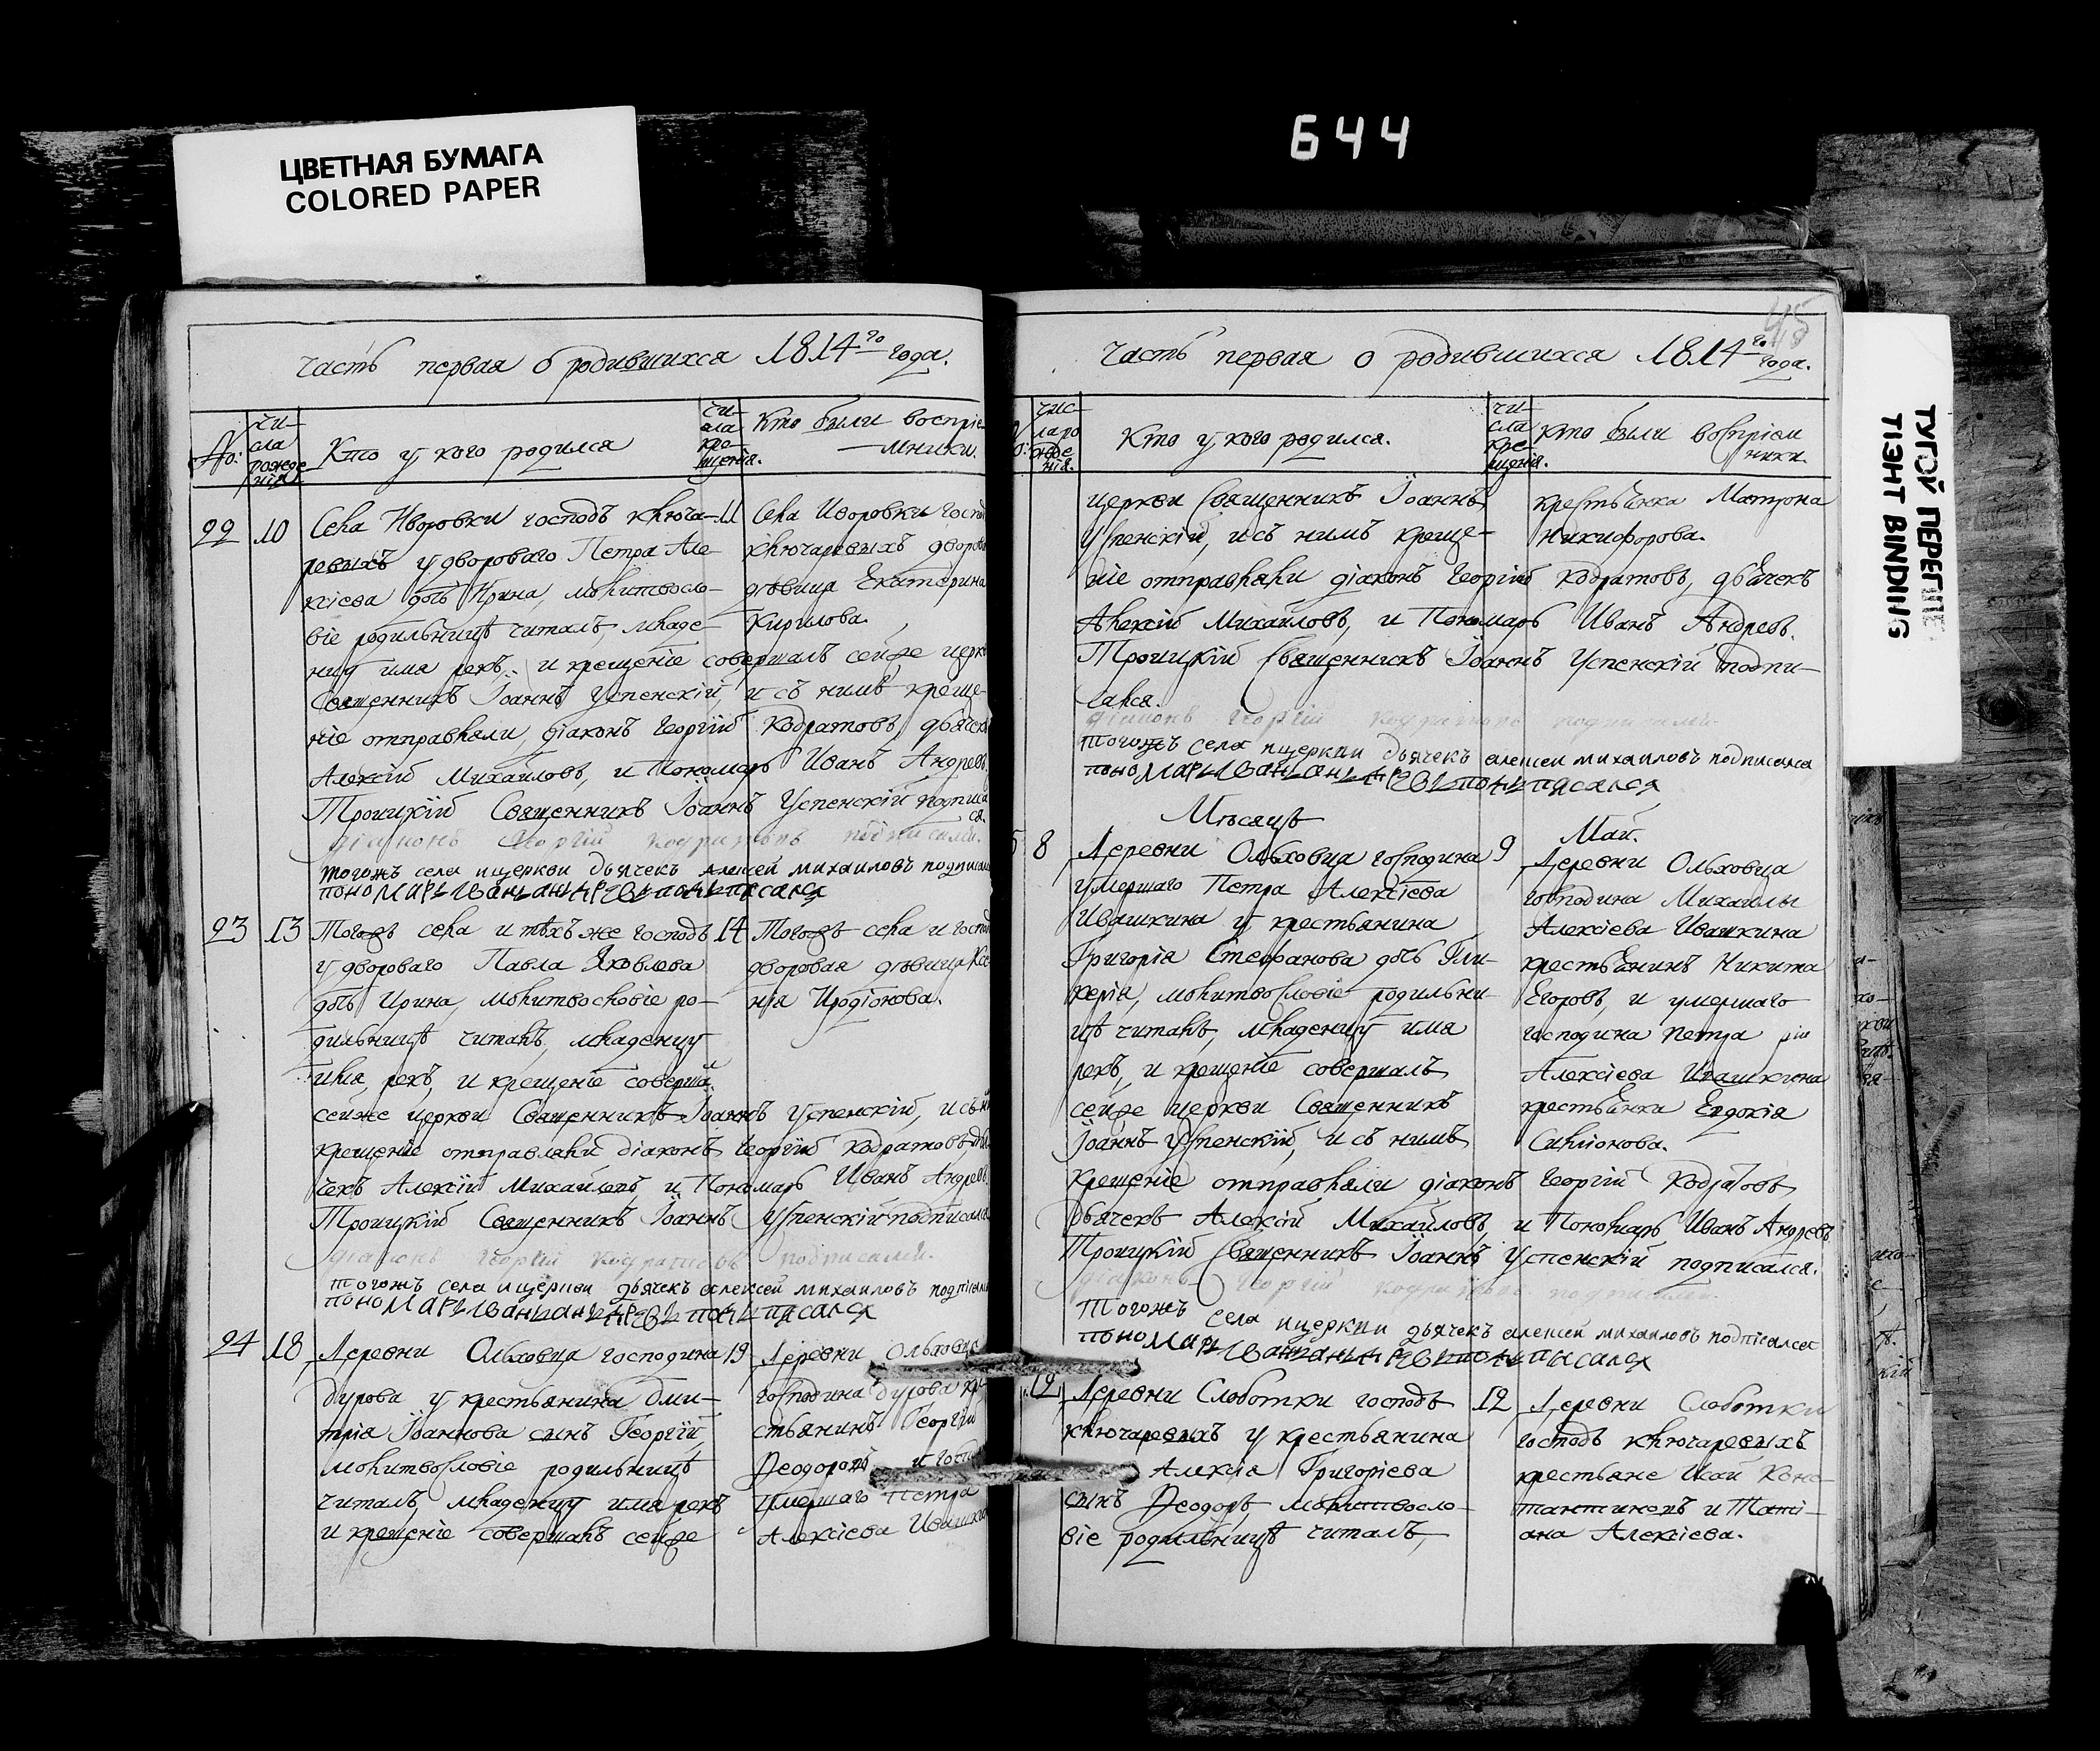 644
ЦВЕТНАЯ БУМАГА
COLORED PAPER
ТУГОЙ ПЕРЕПЛЕ
TIЭHT BINDING
часть первая о родившихся 1814го года.
No:
чи-
сла
рожде
нія
Кто у кого родился
чи-
сла
кре-
щенія.
Кто были воспріе-
мники.
22 10
Села Иворовки господъ ключа-
ревыхъ у двороваго Петра Але-
ксіева дочь Ирина, молитвосло-
віе родильницѣ читалъ, младе-
нцу имя рекъ, и крещеніе совершалъ сейже церкв
Священникъ Іоаннъ Успенскій, и съ нимъ креще-
ніе отправляли, діаконъ Георгій Кодратовъ, дьячек
Алексій Михайловъ, и Пономарь Иванъ Андреевъ,
Троицкій Священникъ Іоаннъ Успенскій подписал
ся.
діаконъ Георгій Кодратовъ подписался.
тогожъ села ицеркви дьячекъ алексей михаиловъ подписалс
поноМАРЬ Иванъ анъдреевъ подъписался
11
Села Иворовки госпо
ключаревыхъ дворова
дѣвица Екатерина
Кирилова.
23 13
Тогожъ села и тѣхъ же господъ
у двороваго Павла Яковлева
дочь Ирина, молитвословіе ро-
дильницѣ читалъ, младенцу
имя рекъ, и крещеніе соверша.
сейже церкви Священникъ Іоаннъ Успенскій, и съ н
крещеніе отправляли діаконъ Георгій Кодратовъ дь
чекъ Алексій Михайловъ, и Пономарь Иванъ Андреевъ,
Троицкій Священникъ Іоаннъ Успенскій подписалс
діаконъ Георгій Кодратовъ подписался.
тогожъ села ицеркви дьячекъ алексей михаиловъ подписалс
поноМАРЬ Иванъ анъдреевъ подъписался
14
Тогожъ села и госпо
дворовая дѣвица Ксе
нія Иродіонова.
24 18
Деревни Ольховца господина
дурова у крестьянина дми-
трія Іоаннова сынъ Георгій,
молитвословіе родильницѣ
читалъ, младенцу имя рекъ
и крещеніе совершалъ сейже
19
Деревни Ольховца
господина дурова кре
стьянинъ Георгій
Ѳеодоровъ и госпо
умершаго Петра
Алексіева Ивашки
45
часть первая о родившихся 1814го года.
чис-
ла ро
жде
нія.
Кто у кого родился.
чи-
сла
кре
щенія.
Кто были воспріем
ники.
церкви Священникъ Іоаннъ
Успенскій, и съ нимъ креще-
ніе отправляли діаконъ Георгій Кодратовъ, дьячекъ
Алексій Михайловъ, и Пономарь Иванъ Андреевъ.
Троицкій Священникъ Іоаннъ Успенскій подпи-
сался.
діаконъ Георгій Кодратовъ подписался.
тогожъ села ицеркви дьячекъ алексеи михаиловъ подписалса
поноМАРЬ Иванъ анъдреевъ подъписался
крестьянка Матрона
Никифорова.
Мѣсяцъ Май.
5 8
Деревни Ольховца господина
умершаго Петра Алексіева
Ивашкина у крестьянина
Григорія Стефанова дочь Гли-
керія, молитвословіе родильни-
цѣ читалъ, младенцу имя
рекъ, и крещеніе совершалъ
сейже церкви Священникъ
Іоаннъ Успенскій, и съ нимъ
крещеніе отправляли діаконъ Георгій Кодратовъ
дьячекъ Алексій Михайловъ, и Пономарь Иванъ Андреевъ
Троицкій Священникъ Іоаннъ Успенскій подписался.
діаконъ Георгій Кодратовъ подписался.
Тогожъ села ицеркви дьячекъ алексеи михаиловъ подписался
поноМАРЬ Иванъ анъдреевъ подъписался
9
Деревни Ольховца
господина Михаилы
Алексіева Ивашкина
крестьянинъ Никита
Егоровъ, и умершаго
господина Петра
Алексіева Ивашкина
крестьянка Евдокія
Симіонова.
12
Деревни Слоботки господъ
ключаревыхъ у крестьянина
Алексіа Григоріева
сынъ Ѳеодоръ, молитвосло-
віе родильницѣ читалъ,
12
Деревни Слоботки
господъ ключаревыхъ
крестьяне Исай Конс-
тантиновъ и Тати-
ана Алексіева.